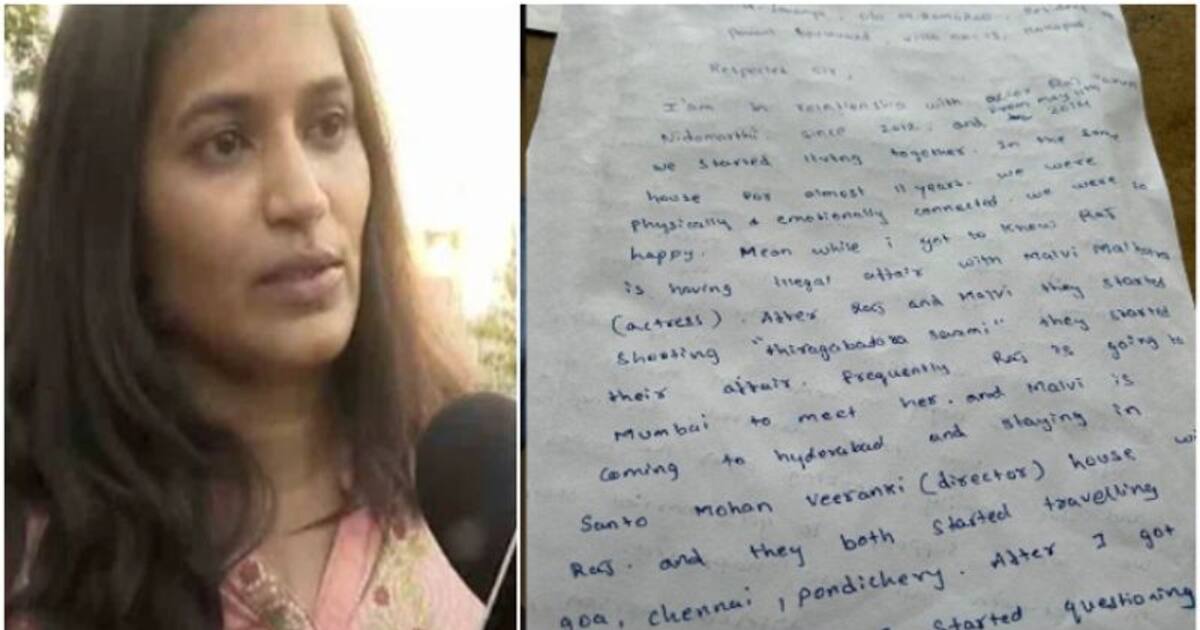 Respected Sir,
I'am in relationship with actor Raj Tarun
from may 11th
Nidamarthi since 2012, and 2014
we started living together. In the same
house for almost 11 years. we were
physically & emotionally connected. we were so
happy. Mean while i got to know Raj
is having illegal affair with Malvi Malhotra
(actress). After Raj and Malvi they started
shooting "thiragabadara saami" they started
their affair. Frequently Raj is going to
Mumbai to meet her. and Malvi is
coming to hyderabad and staying in
Santo Mohan Veeranki (director) house wi
Raj. and they both started travelling
goa, chennai, pondichery. After I got
started questioning